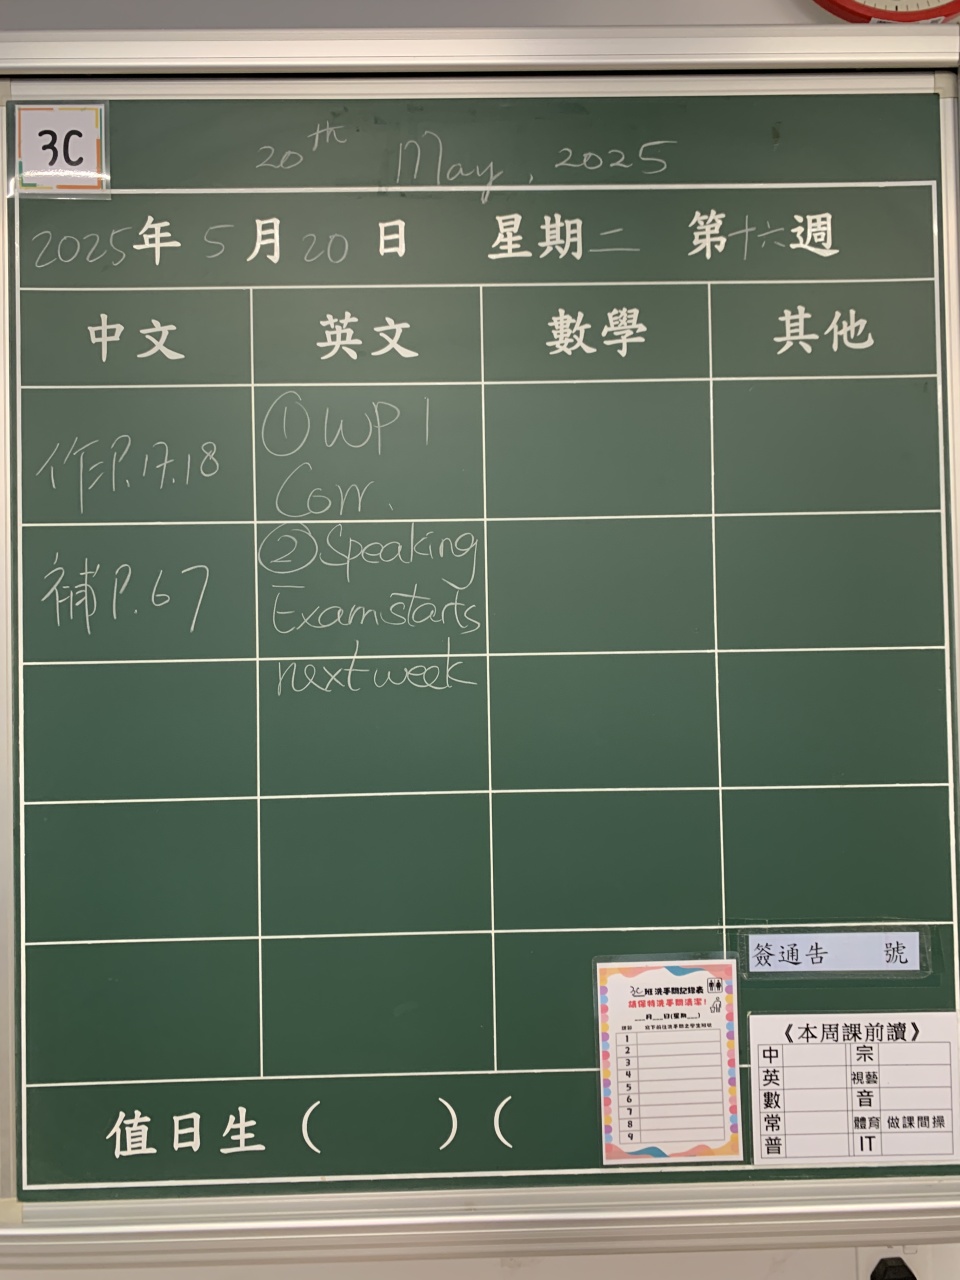 3C
20th May, 2025
2025年5月20日 星期二 第十六週
中文 英文 數學 其他
作P.17.18
補P.67
①WP1
Corr.
②Speaking
Exam starts
next week
簽通告 號
3C班洗手間記錄表
請保持洗手間清潔!
___月___日(星期___)
1
2
3
4
5
6
7
8
9
《本周課前讀》
中 宗
英 視藝
數 音
常 體育 做課間操
普 IT
值日生 ( ) (